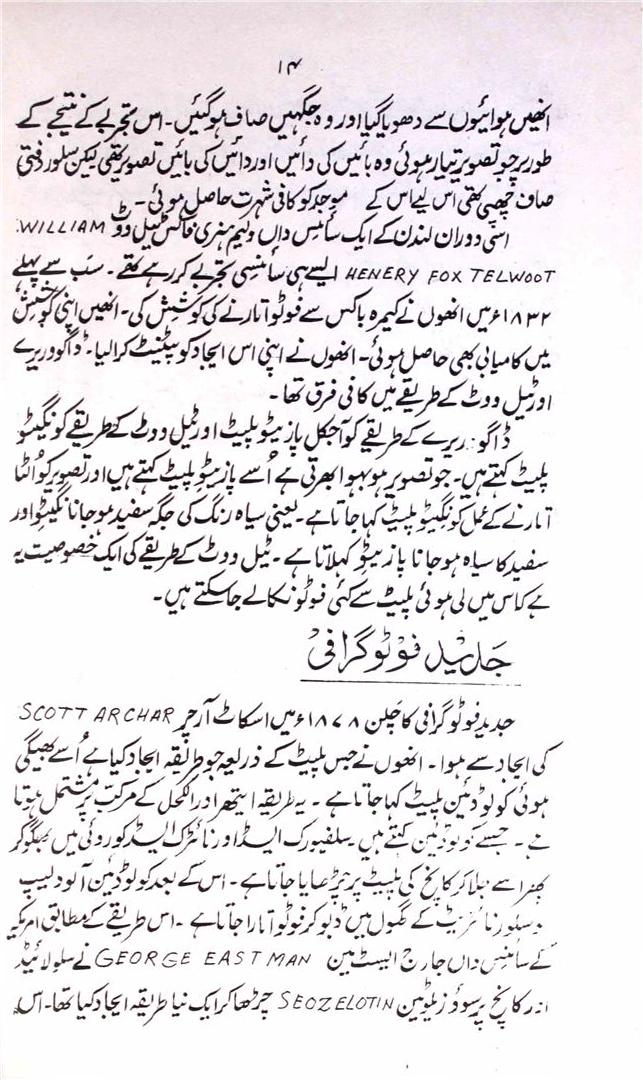 ۱۴
انھیں ہوائیوں سے دھویا گیا اور وہ جگہیں صاف ہو گئیں۔ اس تجربے کے نتیجے کے
طور پر جو تصویر تیار ہوئی وہ بائیں کی دائیں اور دائیں کی بائیں تصویر تھی لیکن سلور
صاف چھپی تھی اس لیے اس کے موجد کو کافی شہرت حاصل ہوئی۔
اسی دوران لندن کے ایک سائنس داں ولیم ہنری فاکس ٹیل ووٹ WILLIAM
HENERY FOX TELWOOT ایسے ہی سائنسی تجربے کر رہے تھے۔ سب سے پہلے
۱۸۳۲ء میں انھوں نے کیمرہ باکس سے فوٹو اتارنے کی کوشش کی۔ انھیں اپنی کوشش
میں کامیابی بھی حاصل ہوئی۔ انھوں نے اپنی اس ایجاد کو پیٹنیٹ کرا لیا۔ ڈاگوریرے
اور ٹیل ووٹ کے طریقے میں کافی فرق تھا۔
ڈاگوریرے کے طریقے کو آجکل پازیٹو پلیٹ اور ٹیل ووٹ کے طریقے کو نگیٹو
پلیٹ کہتے ہیں۔ جو تصویر ہو بہو ابھرتی ہے اُسے پازیٹو پلیٹ کہتے ہیں اور تصویر کو اُلٹا
اتارنے کے عمل کو نگیٹو پلیٹ کہا جاتا ہے۔ یعنی سیاہ رنگ کی جگہ سفید ہو جانا نگیٹو اور
سفید کا سیاہ ہو جانا پازیٹو کہلاتا ہے۔ ٹیل ووٹ کے طریقے کی ایک خصوصیت یہ
ہے کہ اس میں لی ہوئی پلیٹ سے کئی فوٹو نکالے جا سکتے ہیں۔
جدید فوٹوگرافی
جدید فوٹوگرافی کا چلن ۱۸۷۸ء میں اسکاٹ آرچر SCOTT ARCHAR
کی ایجاد سے ہوا۔ انھوں نے جس پلیٹ کے ذریعہ جو طریقہ ایجاد کیا ہے اُسے بھیگی
ہوئی کولوڈئین پلیٹ کہا جاتا ہے۔ یہ طریقہ ایتھر اور الکحل کے مرکب پر مشتمل ہوتا
ہے۔ جسے کولوڈئین کہتے ہیں۔ سلفیورک ایسڈ اور نائٹرک ایسڈ کو روئی میں بھگو کر
پھر اسے جلا کر کانچ کی پلیٹ پر چڑھایا جاتا ہے۔ اس کے بعد کولوڈئین آلود لیپ
سلور نائٹریٹ کے گھول میں ڈبو کر فوٹو اتارا جاتا ہے۔ اس طریقے کے مطابق امریکہ
کے سائنس داں جارج ایسٹ مین GEORGE EASTMAN نے سلولائیڈ
اور کانچ پر SEOZELOTIN چڑھا کر ایک نیا طریقہ ایجاد کیا تھا۔ اس